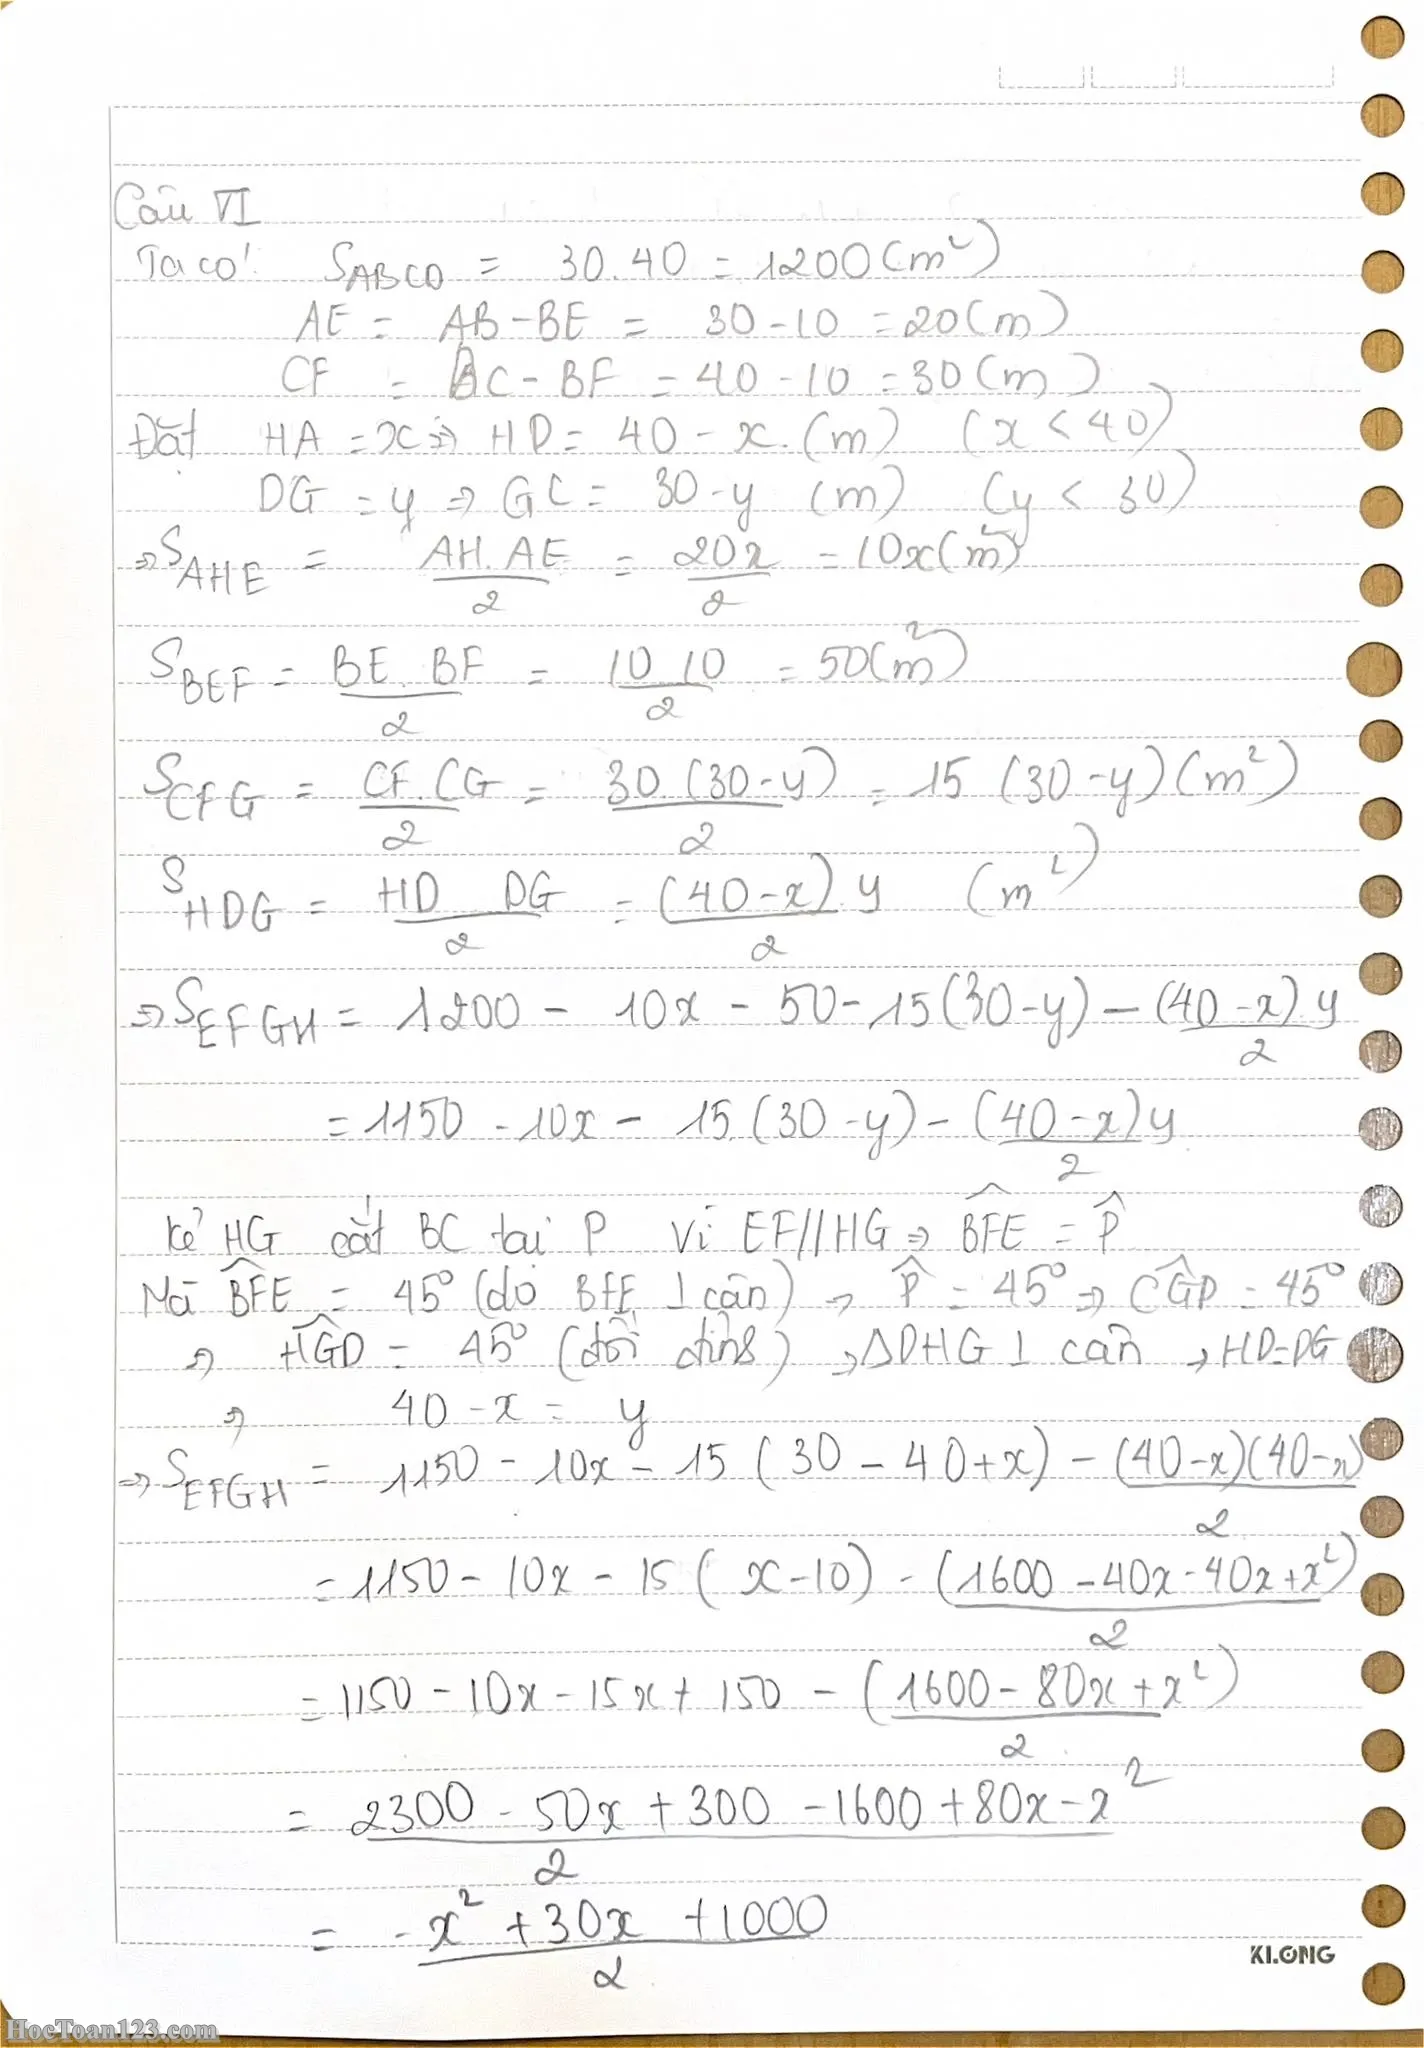 Câu VI
Ta có: S_ABCD = 30.40 = 1200 (m²)
AE = AB - BE = 30 - 10 = 20 (m)
CF = BC - BF = 40 - 10 = 30 (m)
Đặt HA = x => HD = 40 - x. (m) (x < 40)
DG = y => GC = 30 - y (m) (y < 30)
=> S_AHE = AH. AE / 2 = 20x / 2 = 10x (m²)
S_BEF = BE. BF / 2 = 10 10 / 2 = 50 (m²)
S_CFG = CF. CG / 2 = 30. (30 - y) / 2 = 15 (30 - y) (m²)
S_HDG = HD DG / 2 = (40 - x). y / 2 (m²)
=> S_EFGH = 1200 - 10x - 50 - 15 (30 - y) - (40 - x). y / 2
= 1150 - 10x - 15. (30 - y) - (40 - x) y / 2
Kẻ HG cắt BC tại P Vì EF // HG => BFE = P
Mà BFE = 45° (do BFE ⊥ cân) => P = 45° => CGP = 45°
=> HGD = 45° (đối đỉnh) => ΔDHG ⊥ cân => HD = DG
=> 40 - x = y
=> S_EFGH = 1150 - 10x - 15 (30 - 40 + x) - (40 - x)(40 - x) / 2
= 1150 - 10x - 15 (x - 10) - (1600 - 40x - 40x + x²) / 2
= 1150 - 10x - 15x + 150 - (1600 - 80x + x²) / 2
= 2300 - 50x + 300 - 1600 + 80x - x² / 2
= -x² + 30x + 1000 / 2
KLONG
HocToan123.com